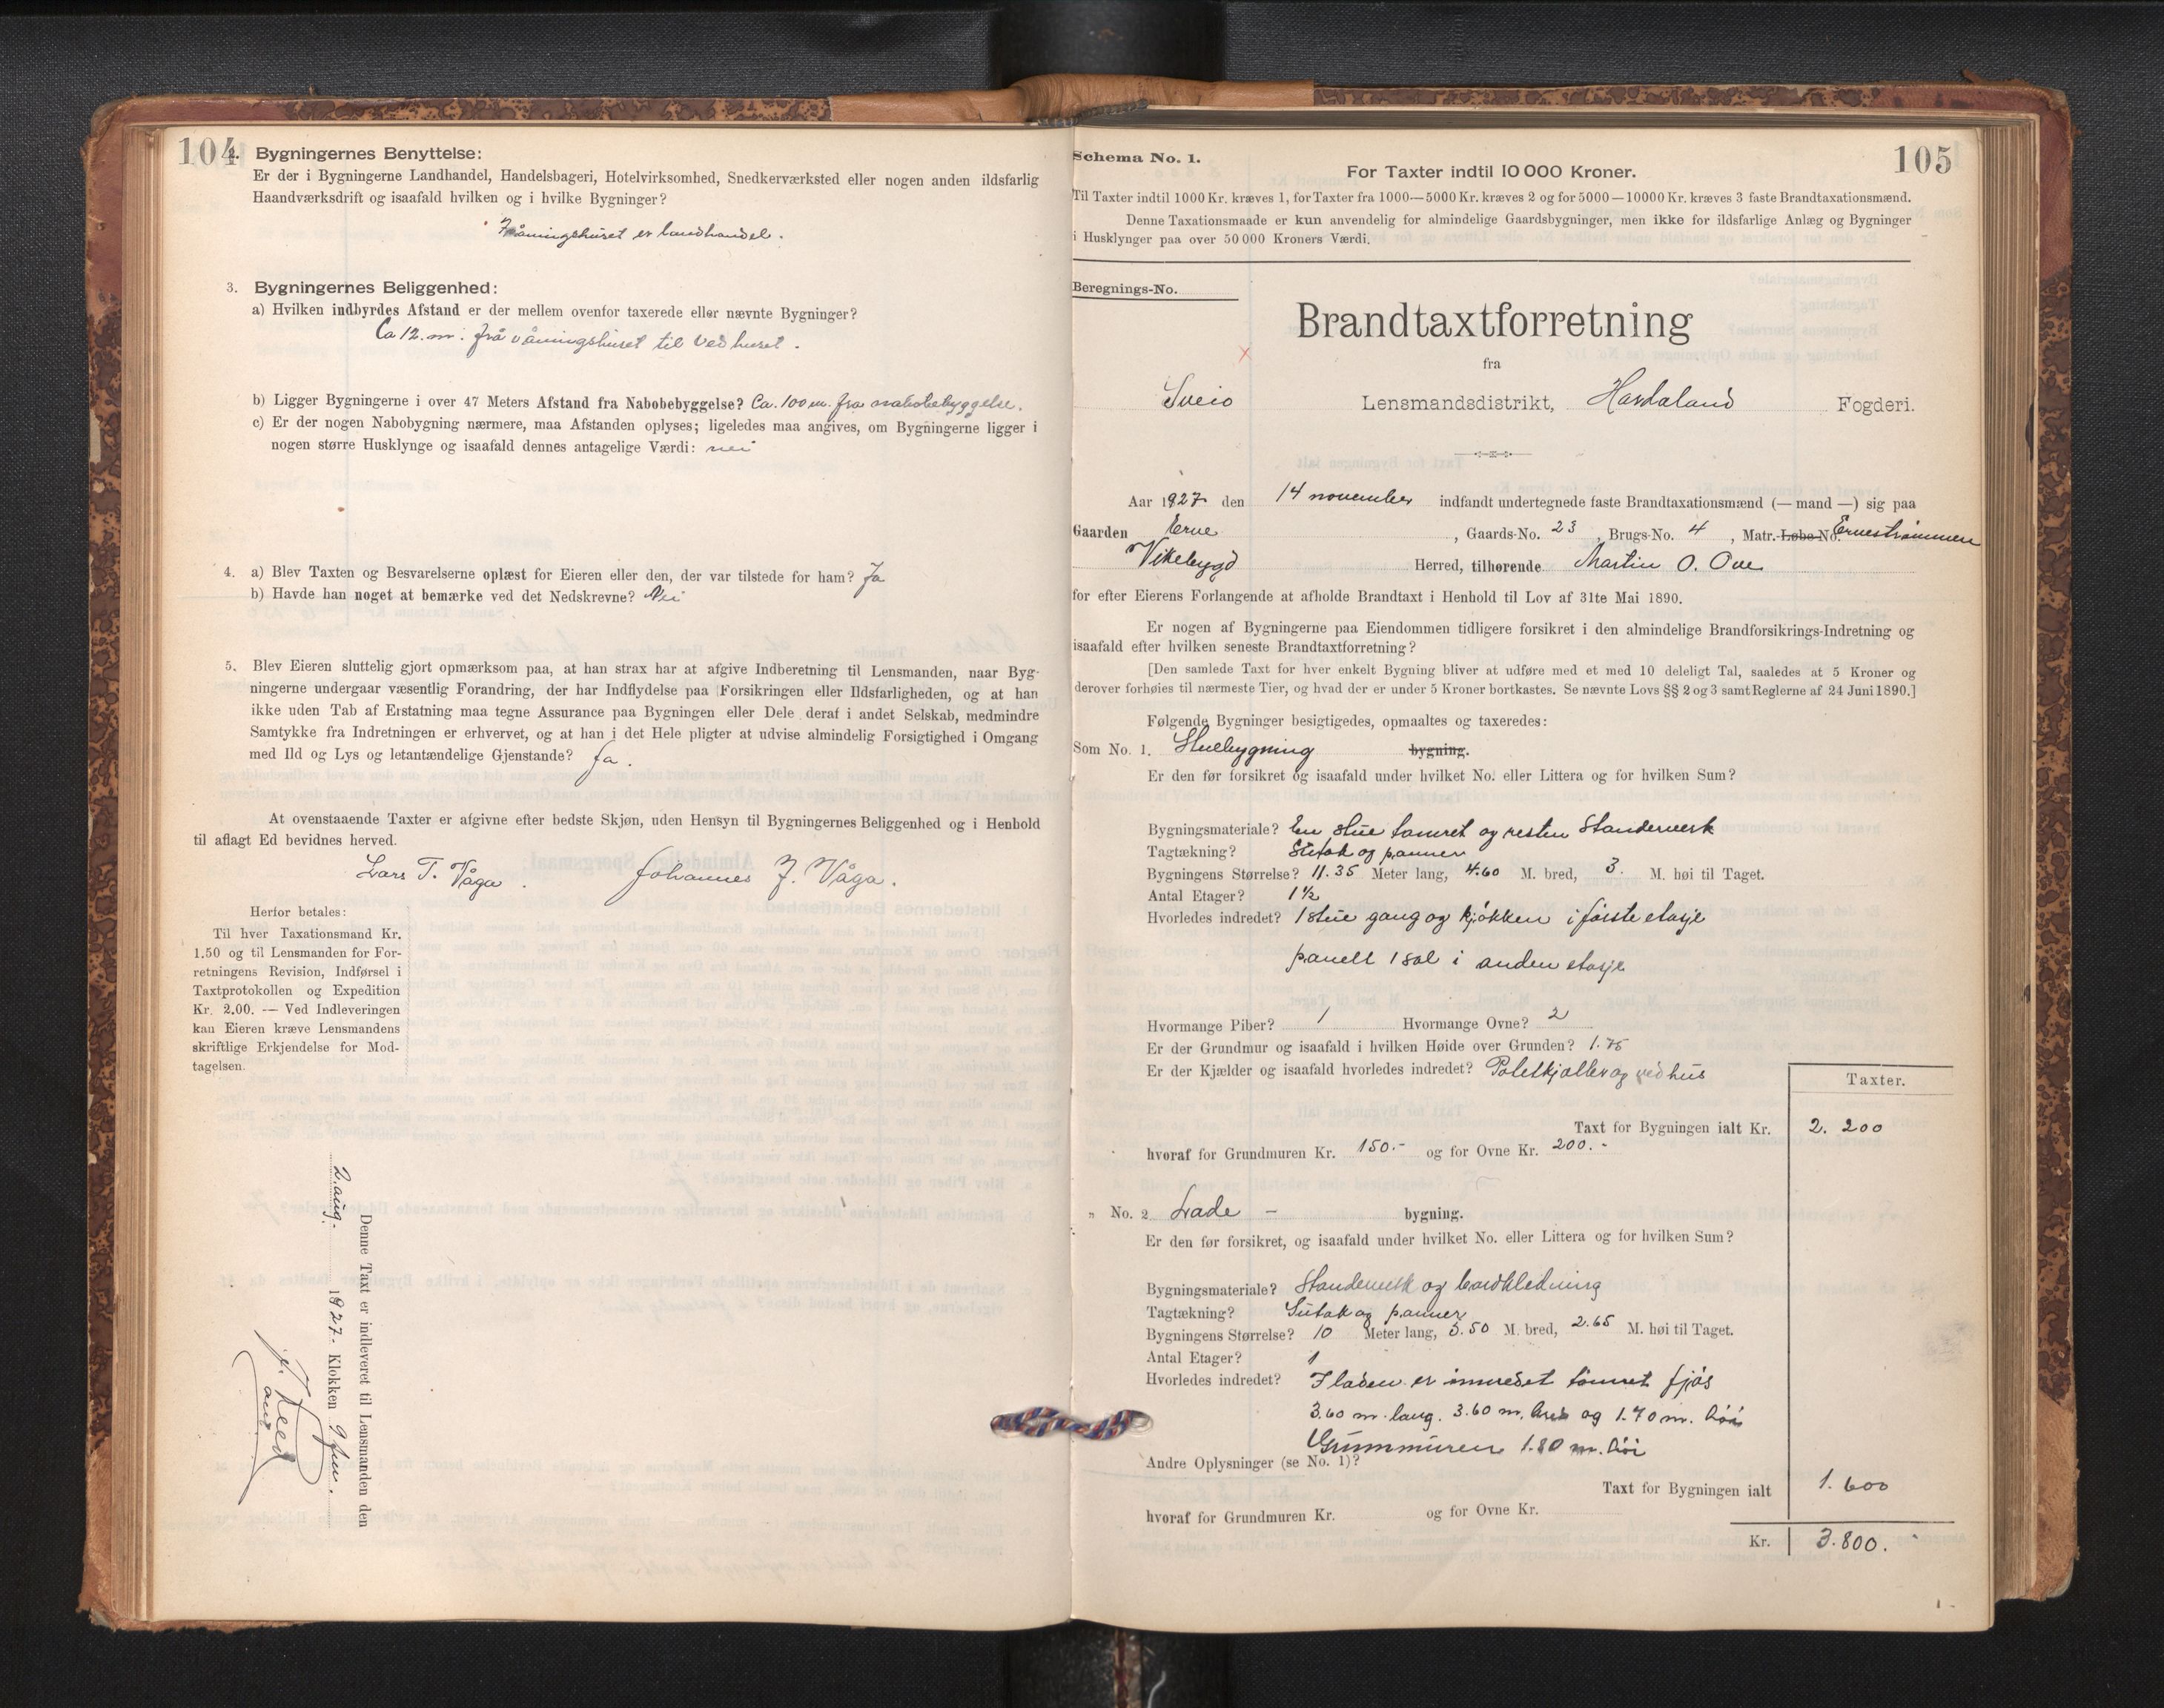 104
2. Bygningernes Benyttelse:
Er der i Bygningerne Landhandel, Handelsbageri, Hotelvirksomhed, Snedkerværksted eller nogen anden ildsfarlig
Haandværksdrift og isaafald hvilken og i hvilke Bygninger?
I våningshuset er landhandel.
3. Bygningernes Beliggenhed:
a) Hvilken indbyrdes Afstand er der mellem ovenfor taxerede eller nævnte Bygninger?
Ca 12. m. frå våningshuset til vedhuset.
b) Ligger Bygningerne i over 47 Meters Afstand fra Nabobebyggelse? Ca. 100 m. fra nabobebyggelse.
c) Er der nogen Nabobygning nærmere, maa Afstanden oplyses; ligeledes maa angives, om Bygningerne ligger i
nogen større Husklynge og isaafald dennes antagelige Værdi: nei
4. a) Blev Taxten og Besvarelserne oplæst for Eieren eller den, der var tilstede for ham? Ja
b) Havde han noget at bemærke ved det Nedskrevne? Nei
5. Blev Eieren sluttelig gjort opmærksom paa, at han strax har at afgive Indberetning til Lensmanden, naar Byg-
ningerne undergaar væsentlig Forandring, der har Indflydelse paa Forsikringen eller Ildsfarligheden, og at han
ikke uden Tab af Erstatning maa tegne Assurance paa Bygningen eller Dele deraf i andet Selskab, medmindre
Samtykke fra Indretningen er erhvervet, og at han i det Hele pligter at udvise almindelig Forsigtighed i Omgang
med Ild og Lys og letantændelige Gjenstande? Ja.
At ovenstaaende Taxter er afgivne efter bedste Skjøn, uden Hensyn til Bygningernes Beliggenhed og i Henhold
til aflagt Ed bevidnes herved.
Lars T. Våga. Johannes J. Våga.
Herfor betales:
Til hver Taxationsmand Kr.
1.50 og til Lensmanden for For-
retningens Revision, Indførsel i
Taxtprotokollen og Expedition
Kr. 2.00. — Ved Indleveringen
kan Eieren kræve Lensmandens
skriftlige Erkjendelse for Mod-
tagelsen.
Denne Taxt er indleveret til Lensmanden den
2. aug. 1927. Klokken 9 fm.
105
Schema No. 1.
For Taxter indtil 10 000 Kroner.
Til Taxter indtil 1000 Kr. kræves 1, for Taxter fra 1000—5000 Kr. kræves 2 og for 5000—10000 Kr. kræves 3 faste Brandtaxationsmænd.
Denne Taxationsmaade er kun anvendelig for almindelige Gaardsbygninger, men ikke for ildsfarlige Anlæg og Bygninger
i Husklynger paa over 50 000 Kroners Værdi.
Beregnings-No.
Brandtaxtforretning
fra
Sveio Lensmandsdistrikt, Hordaland Fogderi.
Aar 1927 den 14 november indfandt undertegnede faste Brandtaxationsmænd (— mand —) sig paa
Gaarden Erve, Gaards-No. 23, Brugs-No. 4, Matr.-Løbe-No. Ervestrømmen
Vikebygd Herred, tilhørende Martin O. Ove
for efter Eierens Forlangende at afholde Brandtaxt i Henhold til Lov af 31te Mai 1890.
Er nogen af Bygningerne paa Eiendommen tidligere forsikret i den almindelige Brandforsikrings-Indretning og
isaafald efter hvilken seneste Brandtaxtforretning?
[Den samlede Taxt for hver enkelt Bygning bliver at udføre med et med 10 deleligt Tal, saaledes at 5 Kroner og
derover forhøies til nærmeste Tier, og hvad der er under 5 Kroner bortkastes. Se nævnte Lovs §§ 2 og 3 samt Reglerne af 24 Juni 1890.]
Følgende Bygninger besigtigedes, opmaaltes og taxeredes:
Som No. 1. Stuebygning bygning.
Er den før forsikret og isaafald under hvilket No. eller Littera og for hvilken Sum?
Bygningsmateriale? En stue tømret og resten Standerverk
Tagtækning? Sutak og panner
Bygningens Størrelse? 11.35 Meter lang, 4.60 M. bred, 3. M. høi til Taget.
Antal Etager? 1½
Hvorledes indredet? 1 stue gang og kjøkken i første etasje
panelt 1 sal i anden etasje
Hvormange Piber? 1 Hvormange Ovne? 2
Er der Grundmur og isaafald i hvilken Høide over Grunden? 1.75
Er der Kjælder og isaafald hvorledes indredet? Potetkjæller og vedhus
Taxter.
Taxt for Bygningen ialt Kr. 2.200
hvoraf for Grundmuren Kr. 150.- og for Ovne Kr. 200.-
" No. 2 Lade - bygning.
Er den før forsikret, og isaafald under hvilket No. eller Littera og for hvilken Sum?
Bygningsmateriale? Standerverk og bordkledning
Tagtækning? Sutak og panner
Bygningens Størrelse? 10 Meter lang, 5.50 M. bred, 2.65 M. høi til Taget.
Antal Etager? 1
Hvorledes indredet? I laden er innredet tømret fjós
3.60 m. lang. 3.60 m. bred og 1.70 m. høi
Grunnmuren 1.80 m. høi
Andre Oplysninger (se No. 1)?
Taxt for Bygningen ialt 1.600
hvoraf for Grundmuren Kr. og for Ovne Kr.
Kr. 3.800.